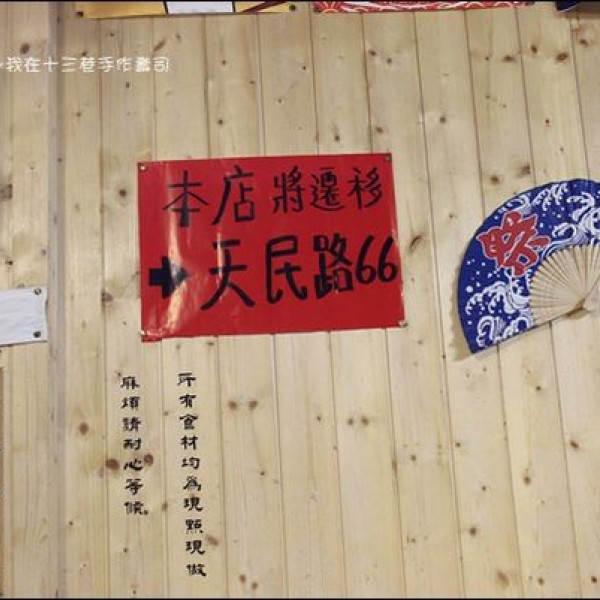 我在十三巷手作壽司
本店將遷移
➡天民路66
所有食材均為現點現做
麻煩請耐心等候。